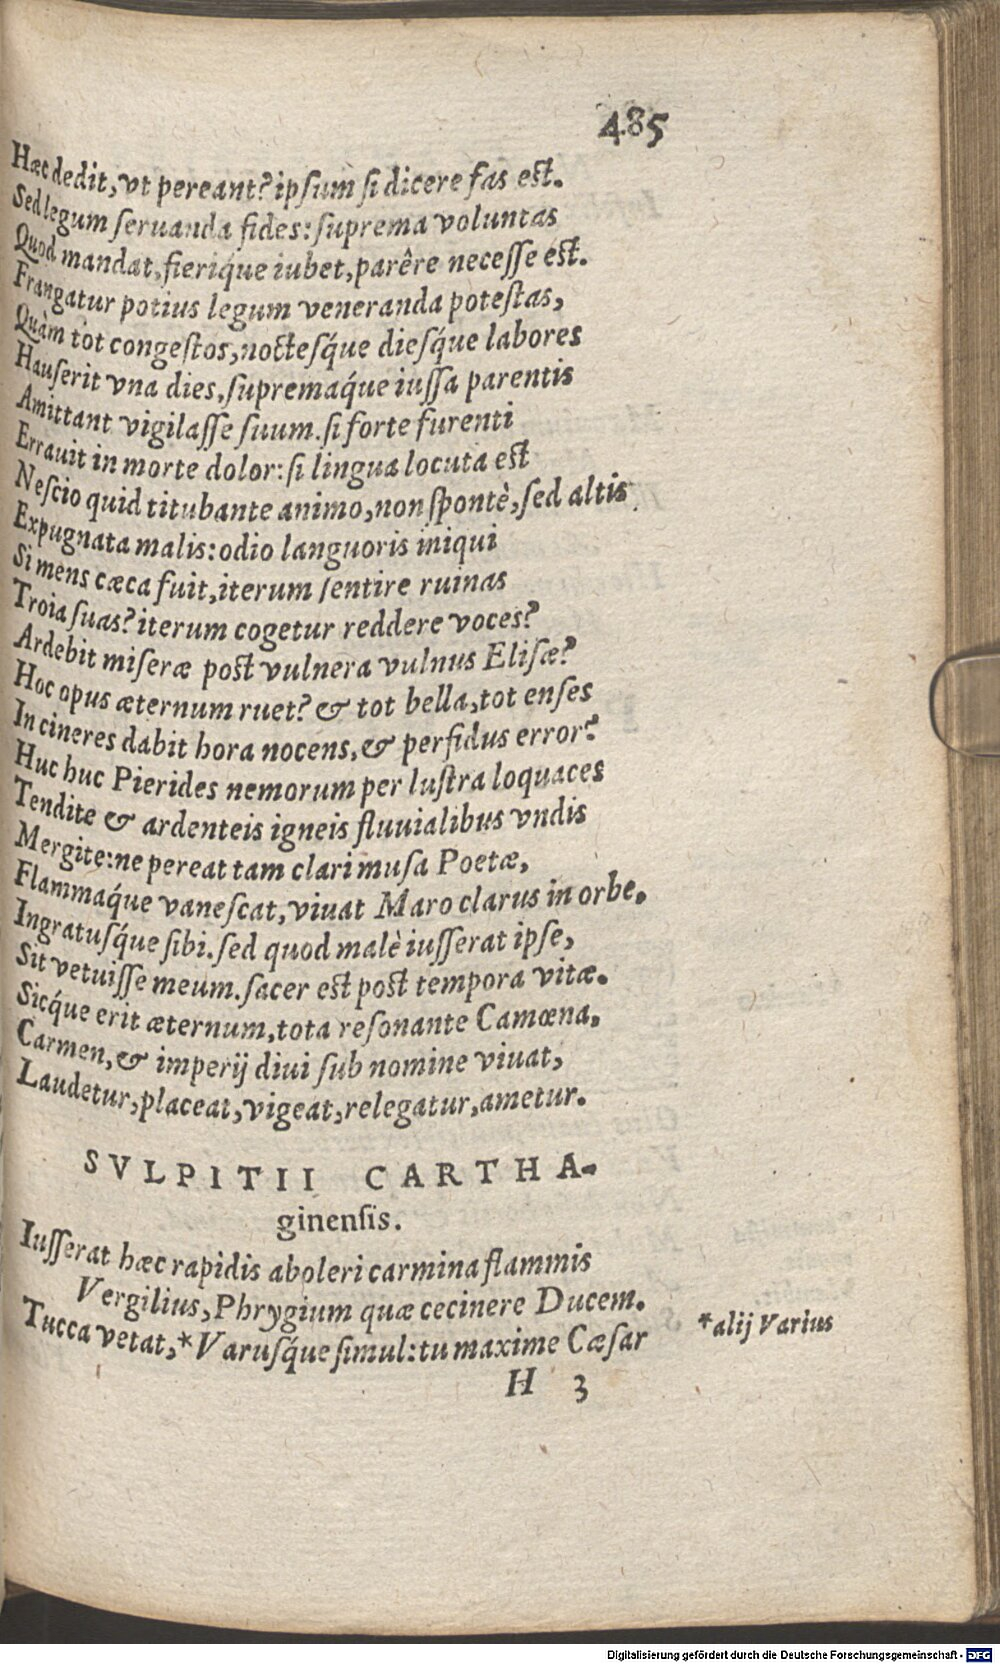 485
Hæc dedit, vt pereant? ipſum ſi dicere fas eſt.
Sed legum ſeruanda fides: ſuprema voluntas
Quod mandat, fieriq́ue iubet, parêre neceſſe eſt.
Frangatur potius legum veneranda poteſtas,
Quàm tot congeſtos, noctesq́ue diesq́ue labores
Hauſerit vna dies, ſupremaq́ue iuſſa parentis
Amittant vigilaſſe ſuum. ſi forte furenti
Errauit in morte dolor: ſi lingua locuta eſt
Neſcio quid titubante animo, non ſpontè, ſed altis
Expugnata malis: odio languoris iniqui
Si mens cæca fuit, iterum ſentire ruinas
Troia ſuas? iterum cogetur reddere voces?
Ardebit miſeræ poſt vulnera vulnus Eliſæ?
Hoc opus æternum ruet? & tot bella, tot enſes
In cineres dabit hora nocens, & perfidus error?
Huc huc Pierides nemorum per luſtra loquaces
Tendite & ardenteis igneis fluuialibus vndis
Mergite: ne pereat tam clari muſa Poetæ,
Flammaq́ue vaneſcat, viuat Maro clarus in orbe.
Ingratusq́ue ſibi. ſed quod malè iuſſerat ipſe,
Sit vetuiſſe meum. ſacer eſt poſt tempora vitæ.
Sicq́ue erit æternum, tota reſonante Camœna.
Carmen, & imperij diui ſub nomine viuat,
Laudetur, placeat, vigeat, relegatur, ametur.
SVLPITII CARTHA-
ginenſis.
Iuſſerat hæc rapidis aboleri carmina flammis
Vergilius, Phrygium quæ cecinere Ducem.
Tucca vetat, *Varusq́ue ſimul: tu maxime Cæſar
*alij Varius
H 3
Digitalisierung gefördert durch die Deutsche Forschungsgemeinschaft - DFG